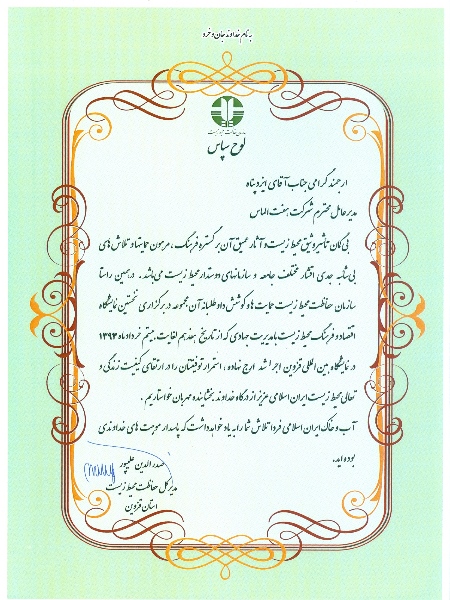 به نام خداوند جان و خرد
سازمان حفاظت محیط زیست
لوح سپاس
ارجمند گرامی جناب آقای ایزدپناه
مدیرعامل محترم شرکت هفت الماس
بی گمان تأثیر وثیق محیط زیست و آثار عمیق آن بر گستره فرهنگ ، مرهون حمایتها و تلاش های
بی شائبه جدی اقشار مختلف جامعه و سازمانهای دوستدار محیط زیست می باشد . در همین راستا
سازمان حفاظت محیط زیست حمایت ها و کوشش داوطلبانه آن مجموعه در برگزاری نخستین نمایشگاه
اقتصاد و فرهنگ محیط زیست با مدیریت جهادی که از تاریخ هفدهم لغایت بیستم خرداد ماه ۱۳۹۳
در نمایشگاه بین المللی قزوین اجرا شد ارج نهاده ، استمرار توفیقتان را در ارتقای کیفیت زندگی و
تعالی محیط زیست ایران اسلامی عزیز از درگاه خداوند بخشاینده مهربان خواستاریم .
آب و خاک ایران اسلامی فردا تلاش شما را به یاد خواهد داشت که پاسدار موهبت های خداوندی
بوده اید.
صدرالدین علیپور
مدیرکل حفاظت محیط زیست
استان قزوین